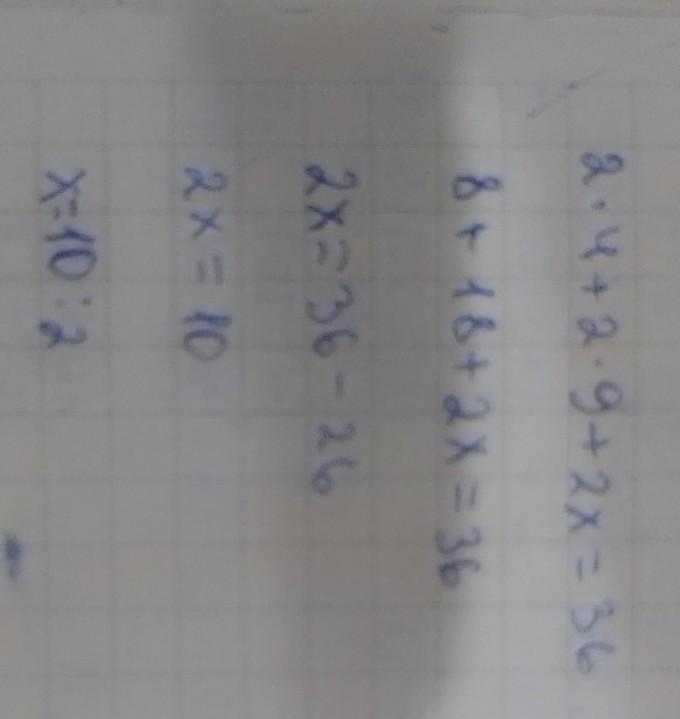 2·4+2·9+2x=36
8+18+2x=36
2x=36-26
2x=10
x=10:2